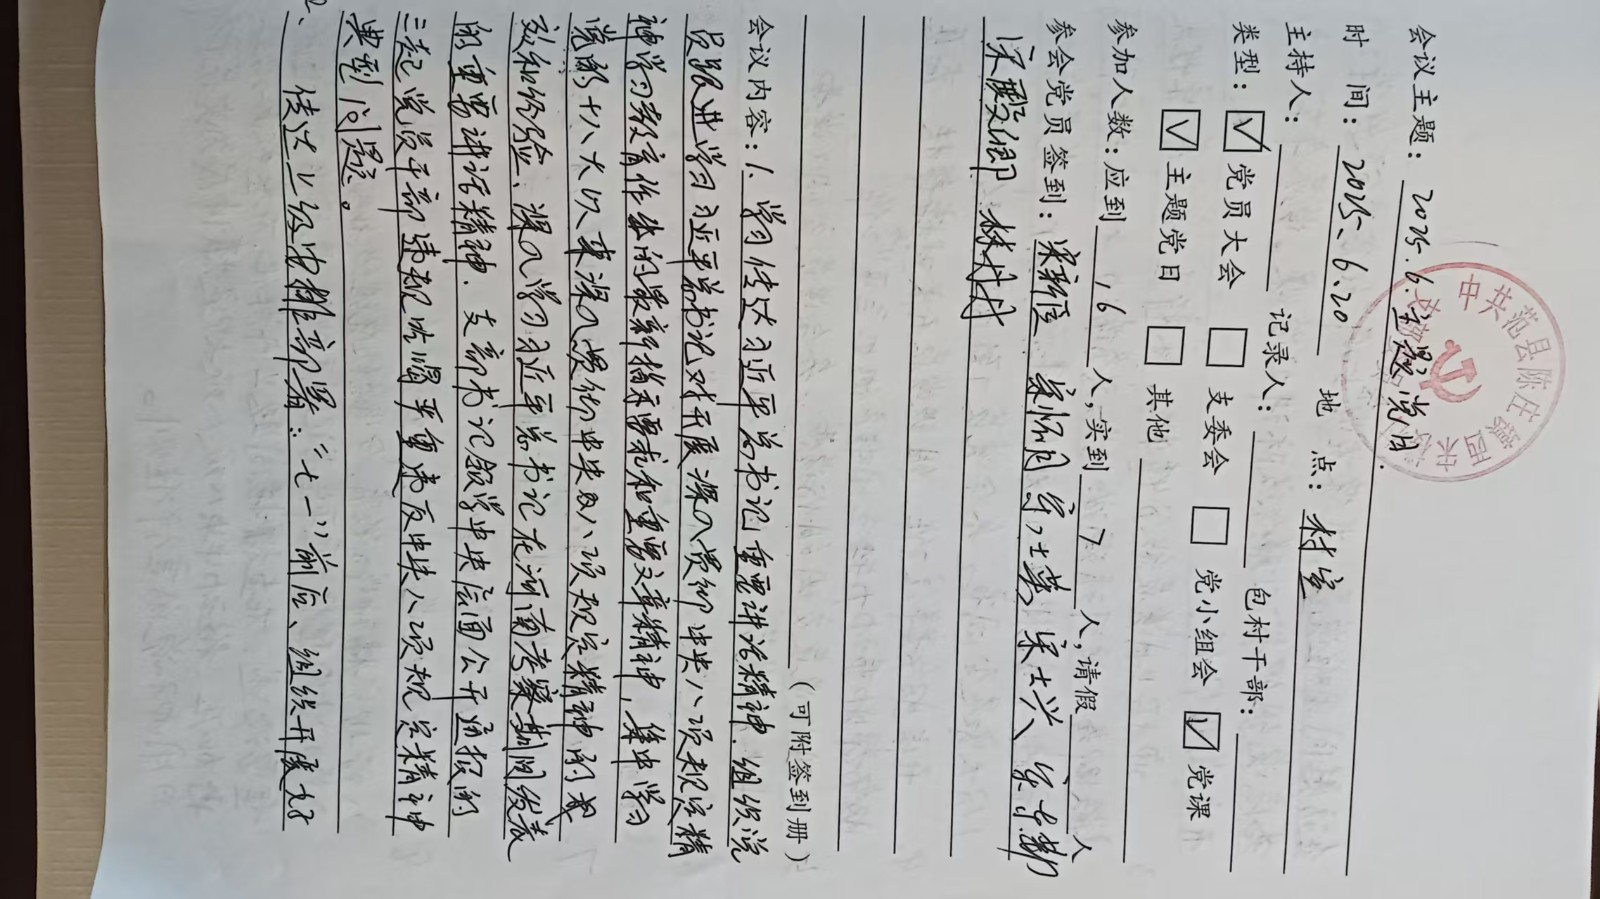 会议主题：2025.6.主题党日.
时 间：2025.6.20 地 点：村室
主持人： 记录人： 包村干部：
类型：☑党员大会 □支委会 □党小组会 ☑党课
☑主题党日 □其他
参加人数：应到 16 人，实到 7 人，请假 人
参会党员签到：宋 宋怀月 宋士英 宋士兴 宋
宋殿卿 林
（可附签到册）
会议内容：1. 学习传达习近平总书记重要讲话精神. 组织党
员跟进学习习近平总书记对开展深入贯彻中央八项规定精
神学习教育作出的最新指示要求和重要文章精神，集中学习
党的十八大以来深入贯彻中央八项规定精神的成
效和经验、深入学习习近平总书记在河南考察期间发表
的重要讲话精神. 支部书记领学中央层面公开通报的
三起党员干部违规吃喝严重违反中央八项规定精神
典型问题。
2、传达上级安排部署："七一"前后、组织开展好
中共范县陈庄镇